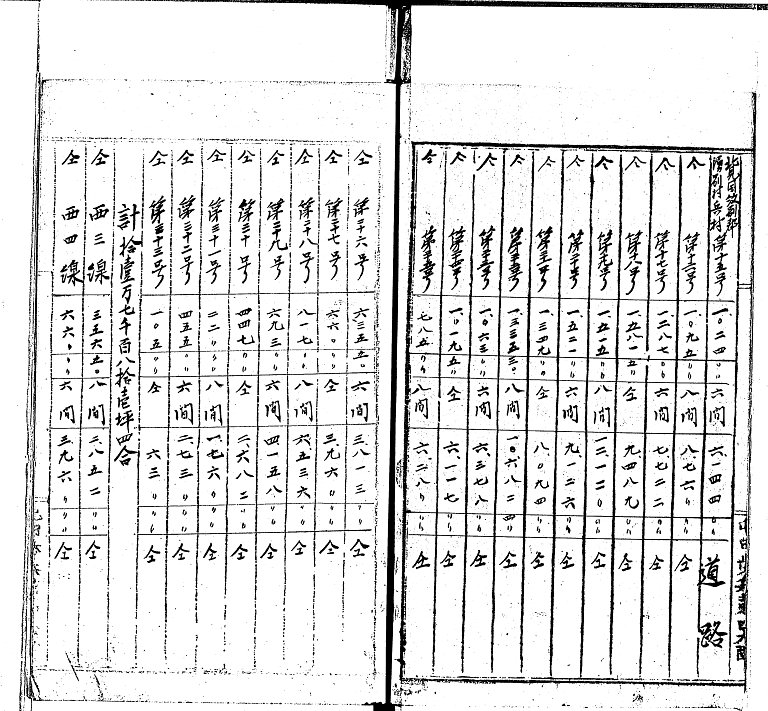 北見国紋別郡
湧別村兵村 第十五号 一、〇二四〃〃 六間 六、一四四〃〃 道路
仝 第十六号 一、〇九五〃〃 八間 八、七六〃〃〃 仝
仝 第十七号 一、二八七〃〃 六間 七、七二二〃〃 仝
仝 第十八号 一、五八一五〃 仝 九、四八九〃〃 仝
仝 第十九号 一、五一五〃〃 八間 一二、一二〇〃〃 仝
仝 第二十号 一、五二一〃〃 六間 九、一二六〃〃 仝
仝 第二十一号 一、三四九〃〃 仝 八、〇九四〃〃 仝
仝 第二十二号 一、三三五三〃 八間 一〇、六八二四〃 仝
仝 第二十三号 一、〇六三〃〃 六間 六、三七八〃〃 仝
仝 第二十四号 一、〃一九五〃 仝 六、一一七〃〃 仝
仝 第二十五号 七八五〃〃 八間 六、二八〃〃〃 仝
仝 第二十六号 六三五五〃 六間 三、八一三〃〃 仝
仝 第二十七号 六六〇〃〃 仝 三、九六〃〃〃 仝
仝 第二十八号 八一七〃〃 八間 六、五三六〃〃 仝
仝 第二十九号 六九三〃〃 六間 四、一五八〃〃 仝
仝 第三十号 四四七〃〃 仝 二、六八二〃〃 仝
仝 第三十一号 二二〃〃〃 八間 一、七六〃〃〃 仝
仝 第三十二号 四五五〃〃 六間 二、七三〃〃〃 仝
仝 第三十三号 一〇五〃〃 仝 六三〃〃〃 仝
計 拾壹万七千百八拾壱坪四合
仝 西三線 三五六五〃 八間 二、八五二〃〃 仝
仝 西四線 六六〃〃〃 六間 三、九六〃〃〃 仝